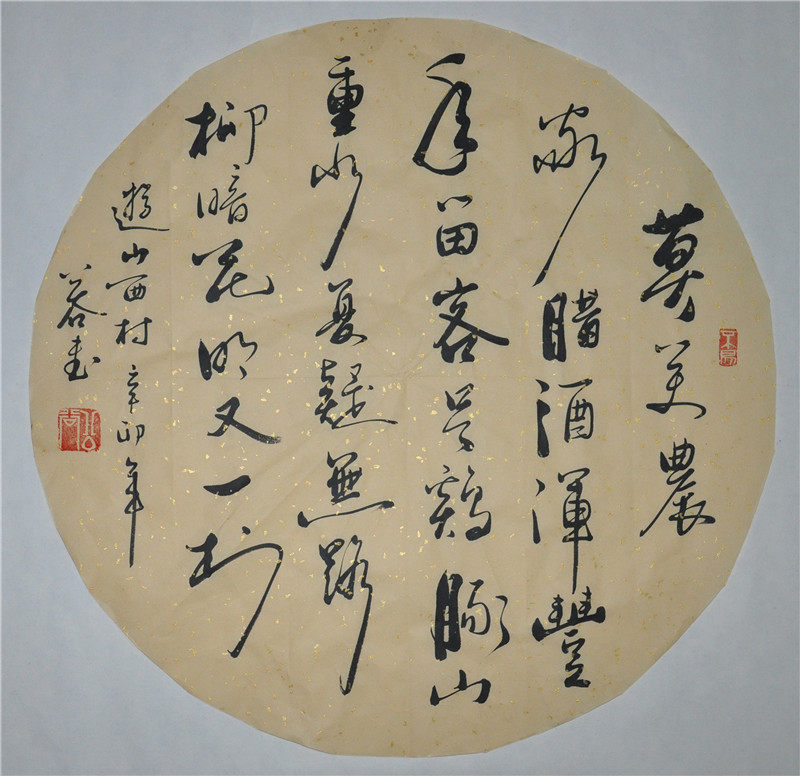 莫笑農
家腊酒渾豐
年留客足鷄豚山
重水复疑無路
柳暗花明又一村
遊山西村 辛卯年
書